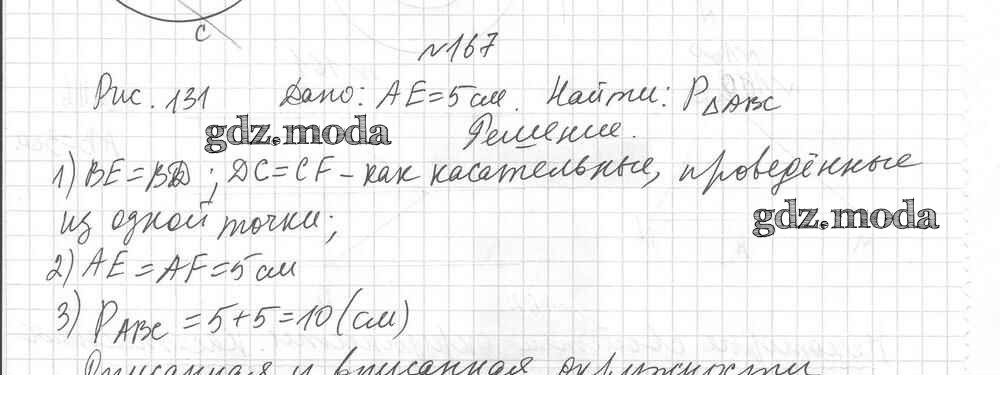 C
№167
Рис. 131 Дано: AE=5см. Найти: P△ABC
gdz.moda
Решение.
1) BE=BD; DC=CF – как касательные, проведённые
gdz.moda
из одной точки;
2) AE=AF=5см
3) PABC=5+5=10(см)
Описанная и вписанная окружности